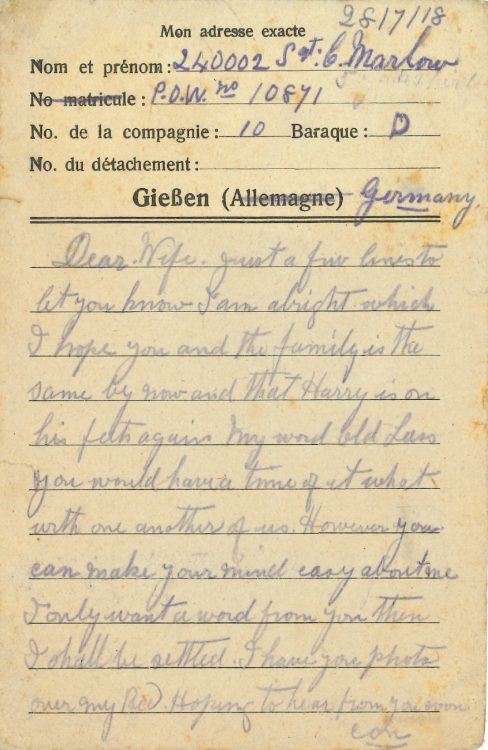 28/7/18
Mon adresse exacte
Nom et prénom : 240002 Sgt: C. Marlow
No matricule : P.O.W. no 10871
No. de la compagnie : 10 Baraque : D
No. du détachement :
Gießen (Allemagne) Germany.
Dear Wife. Just a few lines to
let you know I am alright which
I hope you and the family is the
same by now and that Harry is on
his feet again My word Old Lass
you would have a time of it what
with one another of us. However you
can make your mind easy about me
I only want a word from you then
I shall be settled. I have you photo
over my Bed. Hoping to hear from you soon